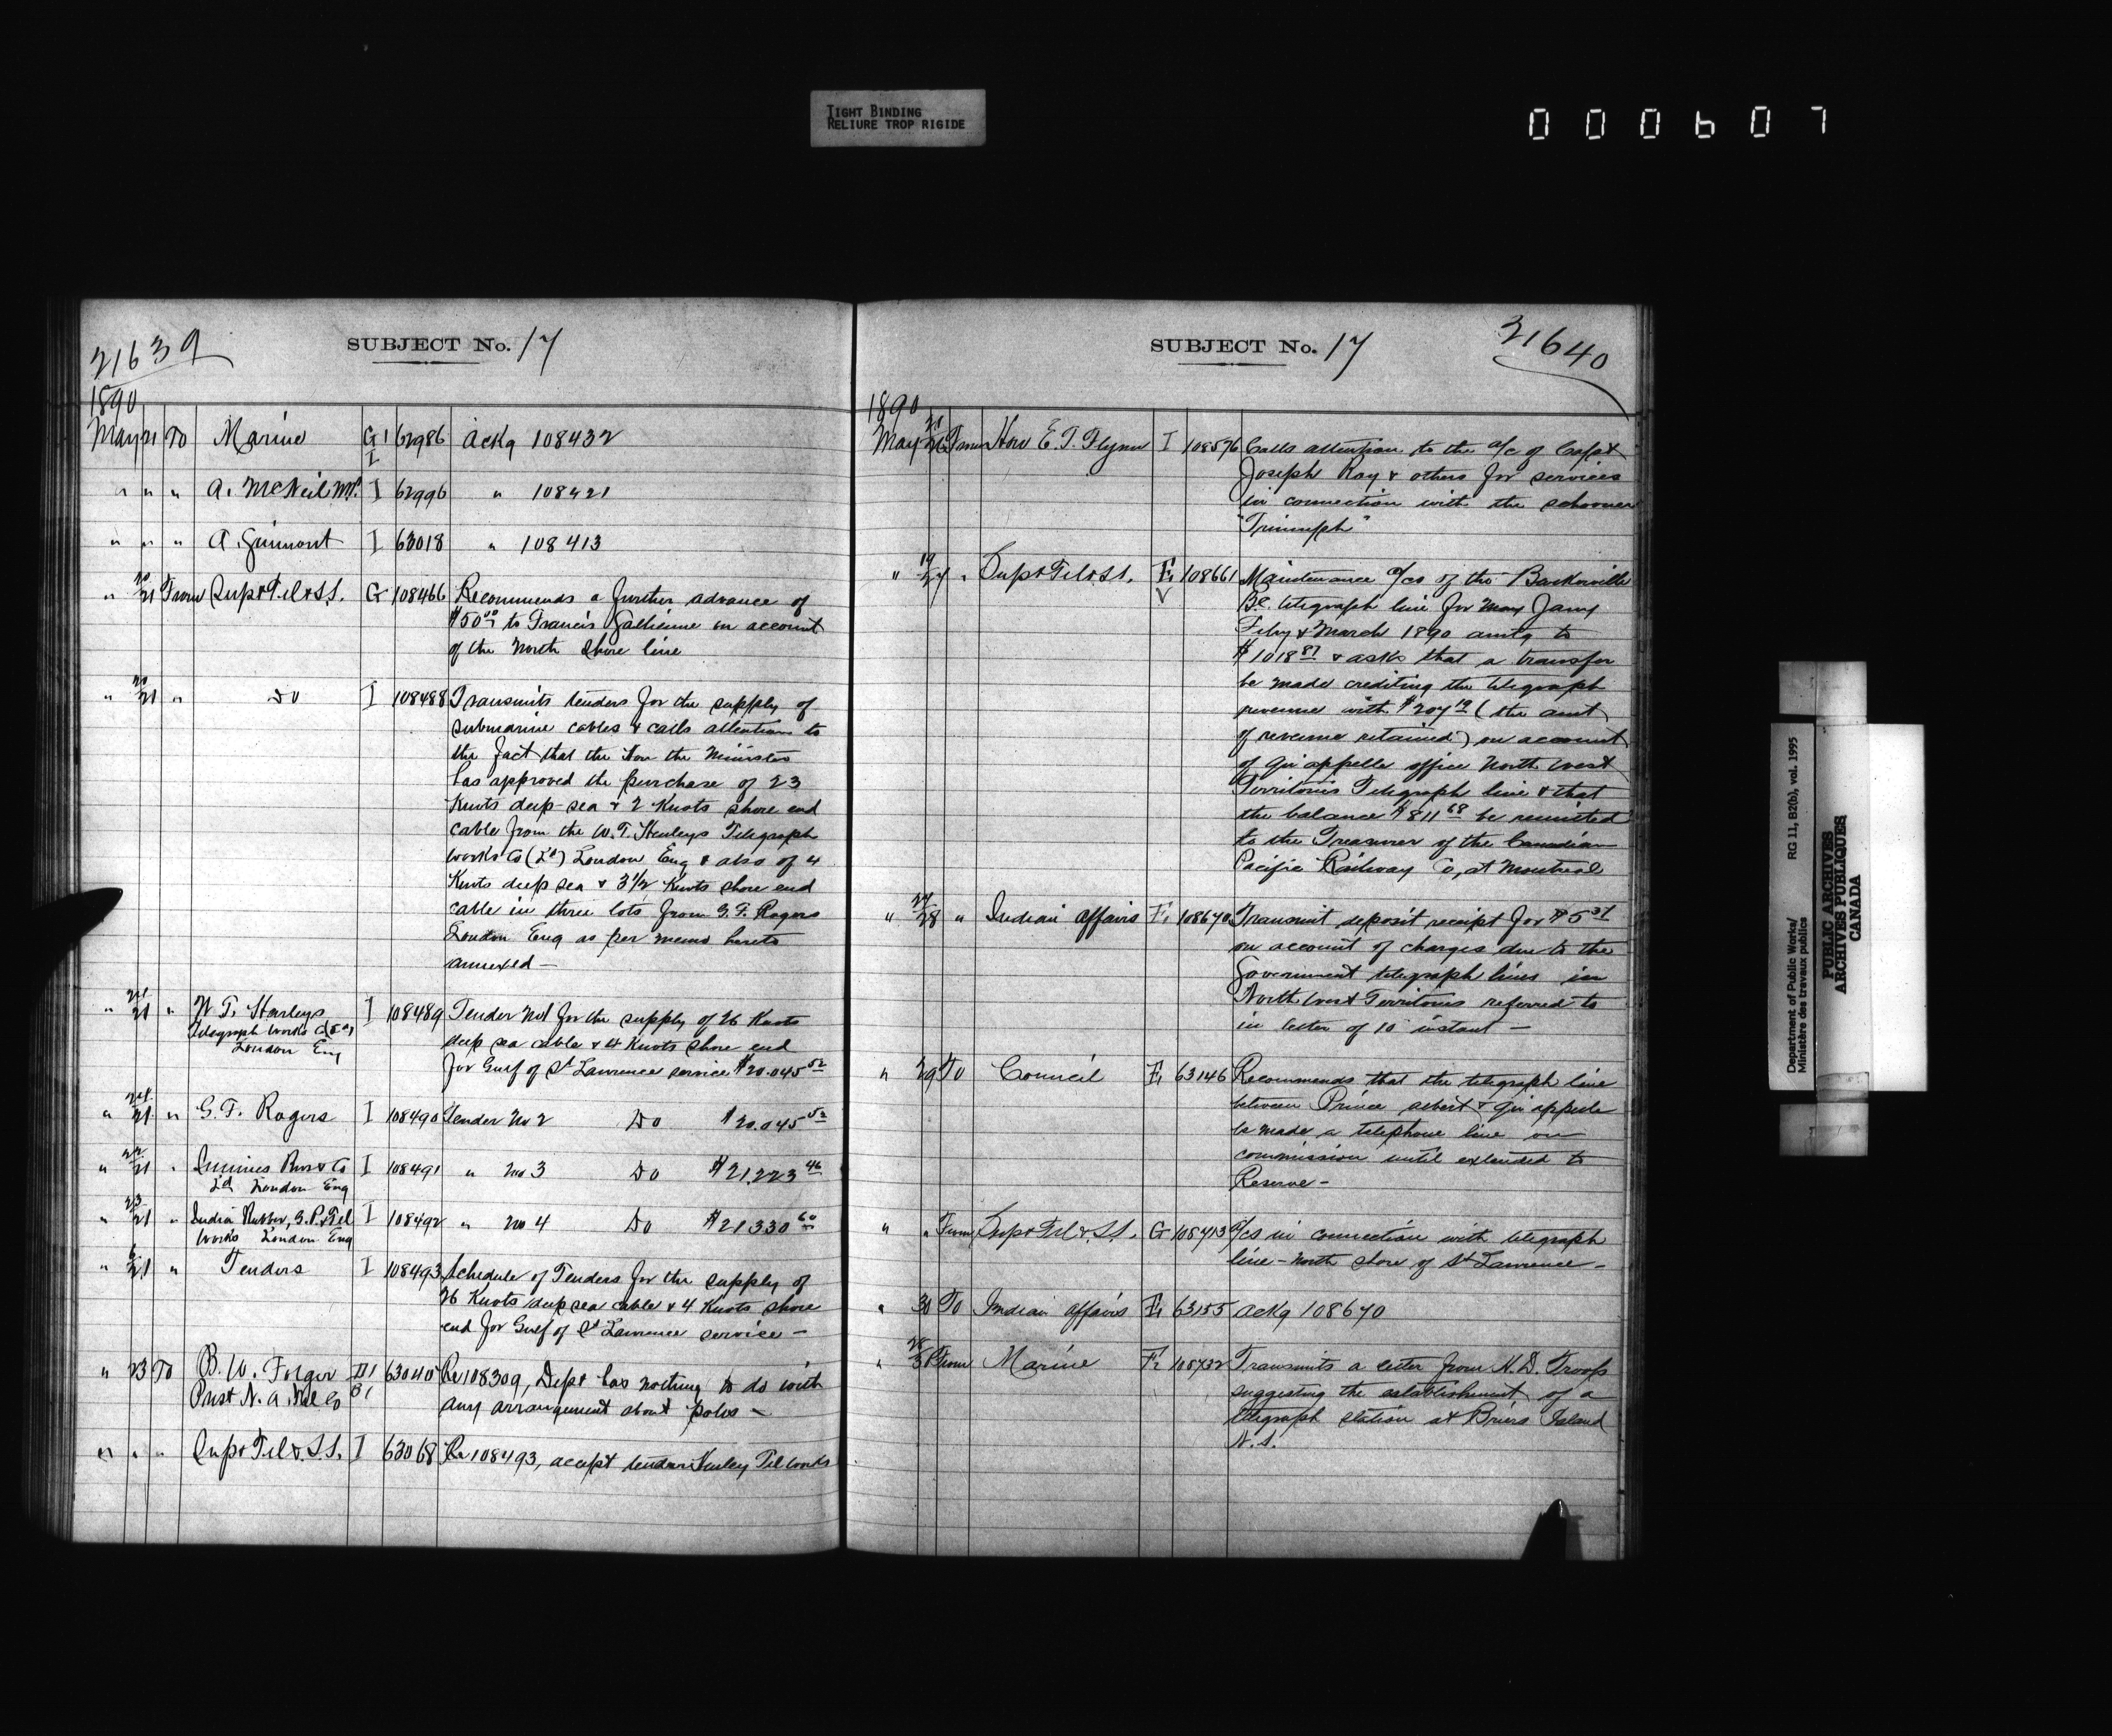 TIGHT BINDING
RELIURE TROP RIGIDE
000607
21639
SUBJECT No. 17
1890
May 21 To Marine G1 I 62986 Ackg 108432
" " " A. McNeil I 62996 " 108421
" " " A. Guimont I 63018 " 108413
" 20/21 From Supt Tel & S.S. G 108466 Recommends a further advance of
$50 00 to Francis Gallienne on account
of the North Shore line
" 20/21 " Do I 108488 Transmits tenders for the supply of
submarine cables & calls attention to
the fact that the Hon the Minister
has approved the purchase of 23
Knots deep sea & 2 Knots shore end
cable from the W. T. Henleys Telegraph
Works Co (Ld) London Eng & also of 4
Knots deep sea & 3 1/2 Knots shore end
cable in three lots from G. F. Rogers
London Eng as per memo hereto
annexed —
" 21 " W. T. Henleys I 108489 Tender No1 for the supply of 26 Knots
Telegraph Works Co (Ld) deep sea cable & 4 Knots shore end
London Eng for Gulf of St Lawrence service $20.045 52
" 21 " G. F. Rogers I 108490 Tender No 2 Do $20.045 52
" 22/21 " Siemens Bros & Co I 108491 " No 3 Do $21.223 46
Ld London Eng
" 23/21 " India Rubber, G. P. & Tel I 108492 " No 4 Do $21330 60
Works London Eng
" 21 " Tenders I 108493 Schedule of Tenders for the supply of
26 Knots deep sea cable & 4 Knots shore
end for Gulf of St Lawrence service —
" 23 To B. W. Folger D1 63040 Re 108309, Dept has nothing to do with
Prest N. A. Tel Co B1 any arrangement about poles —
" " " Supt Tel & S.S. I 63068 Re 108493, accept tender Henley Tel Works
SUBJECT No. 17
21640
1890
May 21/26 From Hon E. J. Flynn I 108576 Calls attention to the a/c of Capt
Joseph Roy & others for services
in connection with the schooner
"Triumph"
" 19/27 " Supt Tel & S.S. F1 108661 Maintenance a/cs of the Barkerville
V BC. telegraph line for Jany
Feby & March 1890 amtg to
$1018 87 & asks that a transfer
be made crediting the telegraph
revenue with $207 19 (the amt
of revenue retained) on account
of Qu'appelle office North West
Territories Telegraph line & that
the balance $811 68 be remitted
to the Treasurer of the Canadian
Pacific Railway Co, at Montreal
" 27/28 " Indian Affairs F1 108670 Transmit deposit receipt for $5 37
on account of charges due to the
Government telegraph lines in
North West Territories referred to
in letter of 10 instant —
" 29 To Council F1 63146 Recommends that the telegraph line
between Prince Albert & Qu'appelle
be made a telephone line on
commission until extended to
Reserve —
" " From Supt Tel & S.S. G 108713 a/cs in connection with telegraph
line - North Shore of St Lawrence —
" 30 To Indian Affairs F1 63155 Ackg 108670
" 28/30 From Marine F2 108732 Transmits a letter from H. D. Troop
suggesting the establishment of a
telegraph station at Briers Island
N. S.
Department of Public Works/
Ministère des travaux publics
RG 11, B2(b), vol. 1995
PUBLIC ARCHIVES
ARCHIVES PUBLIQUES
CANADA